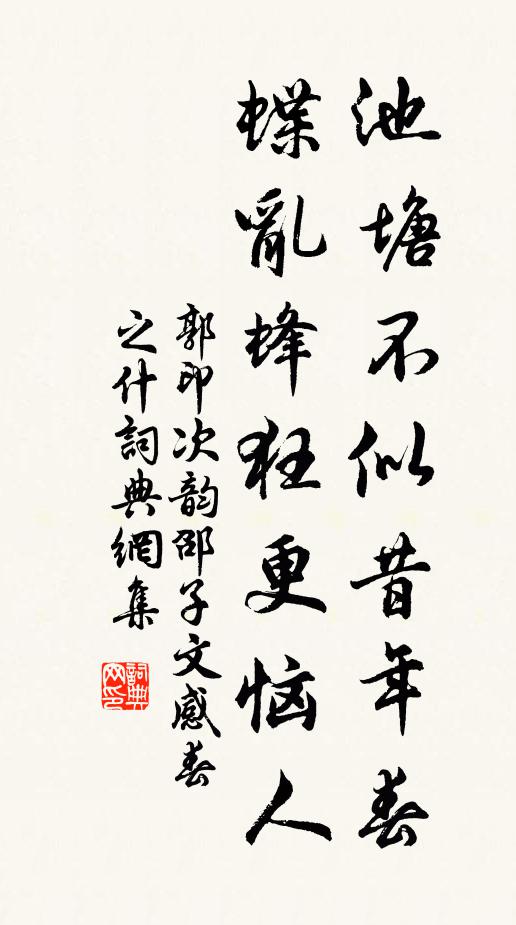 池塘不似昔年春
蝶亂蜂狂更恼人
郭印次韵邵子文感春
之什詞典網集
詞典
网印